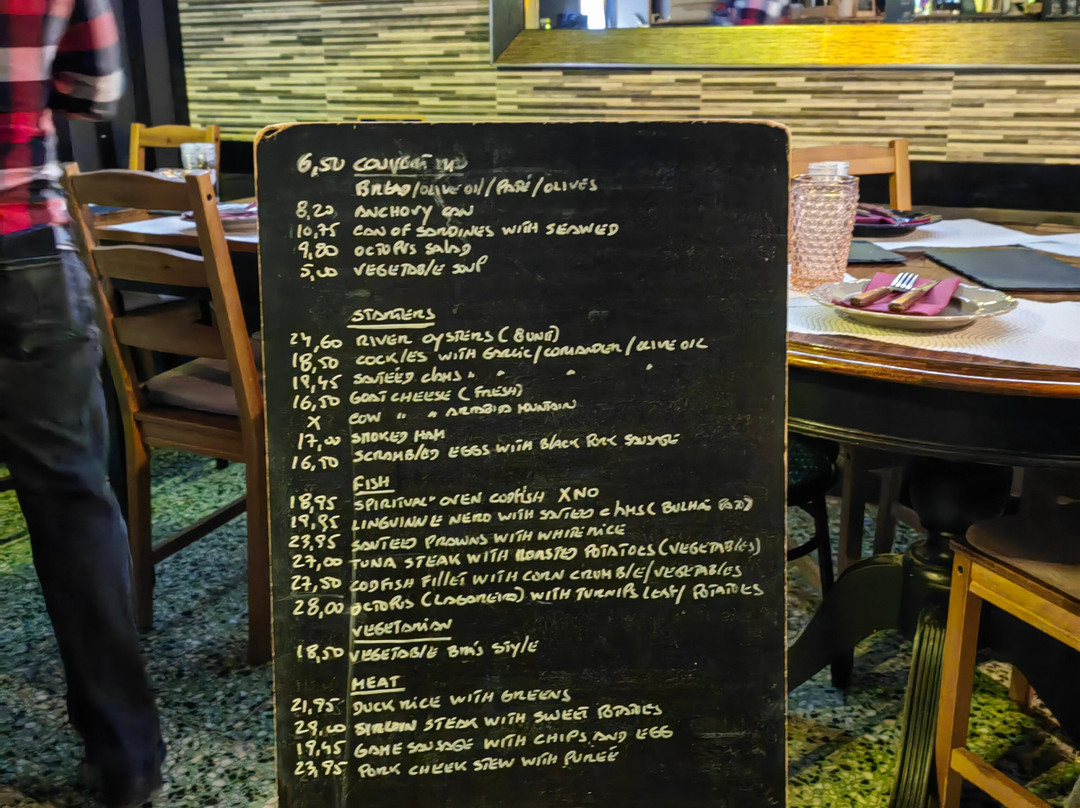 6,50 COUVERT
BREAD/OLIVE OIL/PATÉ/OLIVES
8,20 ANCHOVY CAN
10,75 CAN OF SARDINES WITH SEAWED
9,80 OCTOPUS SALAD
5,00 VEGETABLE SOUP
STARTERS
24,60 RIVER OYSTERS (8 UNIT)
18,50 COCKLES WITH GARLIC/CORIANDER/OLIVE OIL
19,45 SAUTEED CLAMS " " " "
16,50 GOAT CHEESE (FRESH)
X COW " " ARRABIDA MOUNTAIN
17,00 SMOKED HAM
16,50 SCRAMBLED EGGS WITH BLACK PORK SAUSAGE
FISH
18,95 SPIRITUAL" OVEN CODFISH X NO
19,95 LINGUINNE NERO WITH SAUTEED CLAMS (BULHÃO PATO)
23,95 SAUTEED PRAWNS WITH WHITE RICE
27,00 TUNA STEAK WITH ROASTED POTATOES (VEGETABLES)
27,50 CODFISH FILLET WITH CORN CRUMBLE/VEGETABLES
28,00 OCTOPUS (LAGAREIRO) WITH TURNIPS LEAF/ POTATOES
VEGETARIAN
18,50 VEGETABLE BRÁS STYLE
MEAT
21,95 DUCK RICE WITH GREENS
29,00 SIRLOIN STEAK WITH SWEET POTATOES
19,45 GAME SAUSAGE WITH CHIPS AND EGG
23,95 PORK CHEEK STEW WITH PURÉE